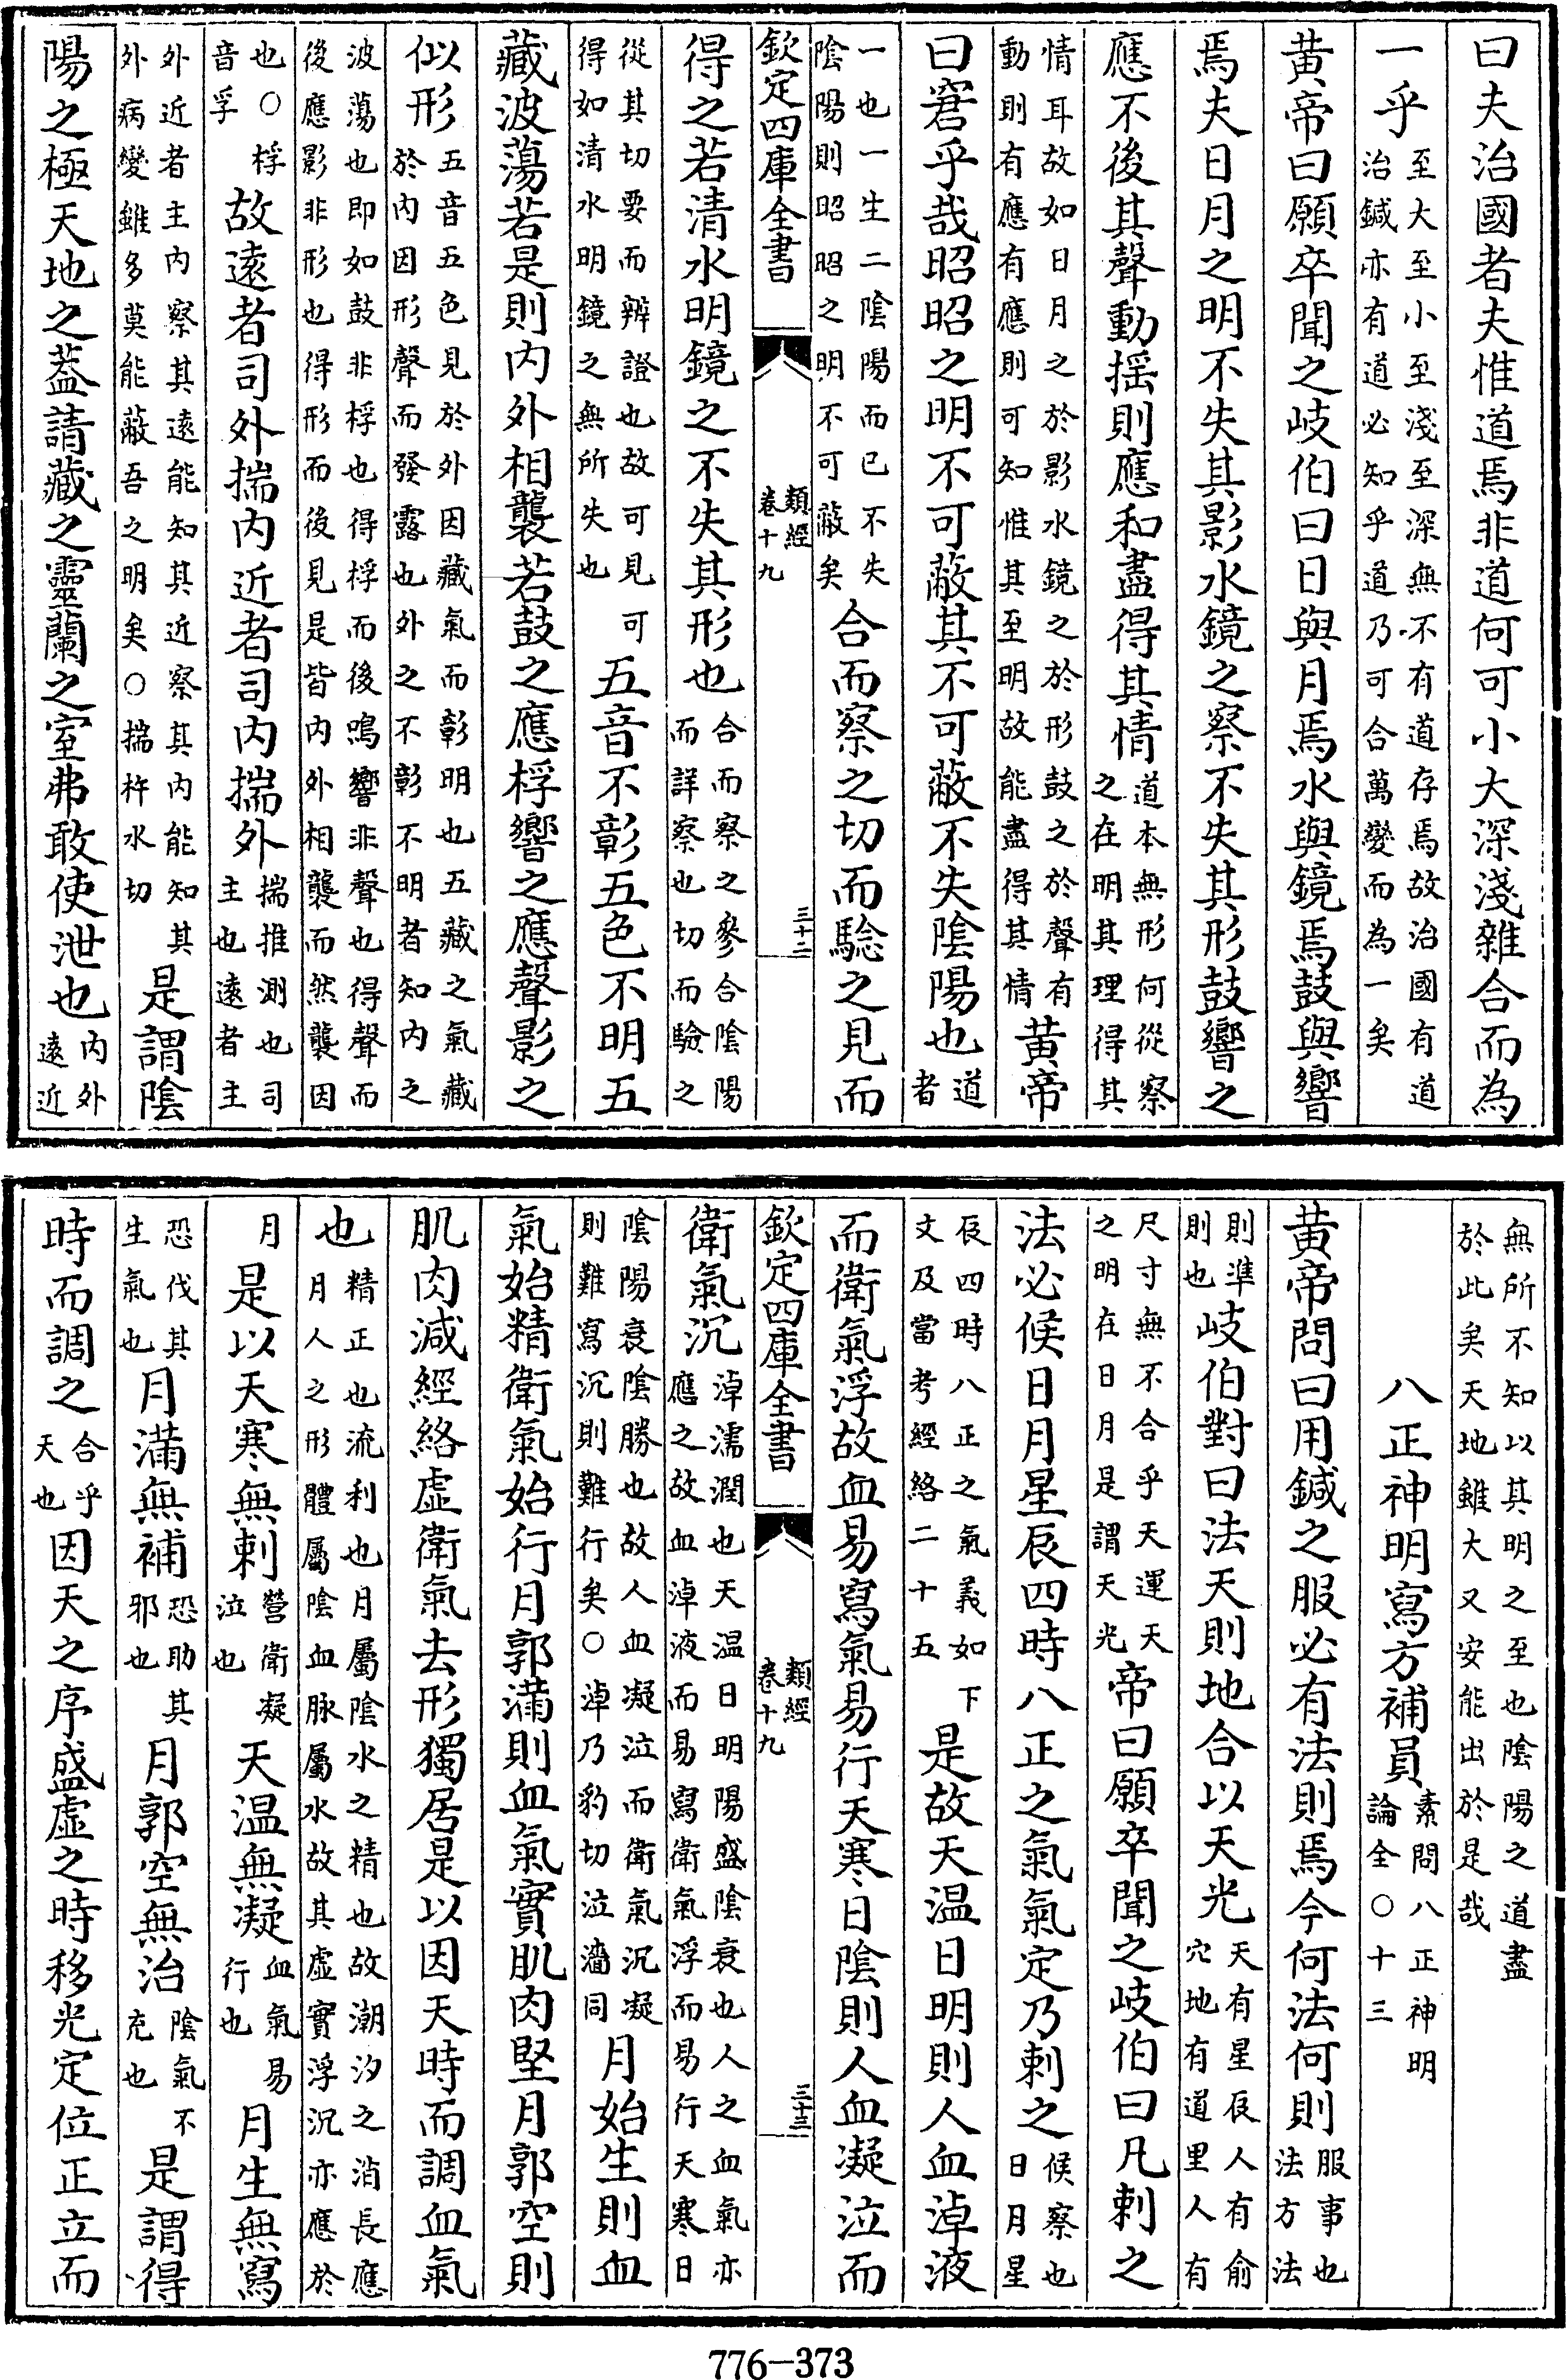 曰夫治國者夫惟道焉非道何可小大深淺雜合而為
一乎至大至小至淺至深無不有道存焉故治國有道治鍼亦有道必知乎道乃可合萬變而為一矣
黄帝曰願卒聞之岐伯曰日與月焉水與鏡焉鼓與響
焉夫日月之明不失其影水鏡之察不失其形鼓響之
應不後其聲動揺則應和盡得其情道本無形何從察之在明其理得其
情耳故如日月之於影水鏡之於形鼓之於聲有動則有應有應則可知惟其至明故能盡得其情黄帝
曰窘乎哉昭昭之明不可蔽其不可蔽不失陰陽也道者
一也一生二陰陽而已不失陰陽則昭昭之明不可蔽矣合而察之切而騐之見而
欽定四庫全書
類經
卷十九
三十二
得之若清水明鏡之不失其形也合而察之參合陰陽而詳察也切而驗之
從其切要而辨證也故可見可得如清水明鏡之無所失也五音不彰五色不明五
藏波蕩若是則内外相襲若鼓之應桴響之應聲影之
似形五音五色見於外因藏氣而彰明也五藏之氣藏於内因形聲而發露也外之不彰不明者知内之
波蕩也即如鼓非桴也得桴而後鳴響非聲也得聲而後應影非形也得形而後見是皆内外相襲而然襲因
也○桴音孚故遠者司外揣内近者司内揣外揣推測也司主也遠者主
外近者主内察其遠能知其近察其内能知其外病變雖多莫能蔽吾之明矣○揣杵水切是謂陰
陽之極天地之蓋請藏之靈蘭之室弗敢使泄也内外遠近
無所不知以其明之至也陰陽之道盡於此矣天地雖大又安能出於是哉
八正神明寫方補員素問八正神明論全○十三
黄帝問曰用鍼之服必有法則焉今何法何則服事也法方法
則準則也岐伯對曰法天則地合以天光天有星辰人有俞穴地有道里人有
尺寸無不合乎天運天之明在日月是謂天光帝曰願卒聞之岐伯曰凡刺之
法必候日月星辰四時八正之氣氣定乃刺之候察也日月星
辰四時八正之氣義如下文及當考經絡二十五是故天温日明則人血淖液
而衛氣浮故血易寫氣易行天寒日陰則人血凝泣而
欽定四庫全書
類經
卷十九
三十三
衛氣沉淖濡潤也天温日明陽盛陰衰也人之血氣亦應之故血淖液而易寫衛氣浮而易行天寒日
陰陽衰陰勝也故人血凝泣而衛氣沉凝則難寫沉則難行矣○淖乃豹切泣濇同月始生則血
氣始精衛氣始行月郭滿則血氣實肌肉堅月郭空則
肌肉減經絡虛衛氣去形獨居是以因天時而調血氣
也精正也流利也月屬陰水之精也故潮汐之消長應月人之形體屬陰血脉屬水故其虛實浮沉亦應於
月是以天寒無刺營衛凝泣也天温無凝血氣易行也月生無寫
恐伐其生氣也月滿無補恐助其邪也月郭空無治陰氣不充也是謂得
時而調之合乎天也因天之序盛虛之時移光定位正立而
776-373